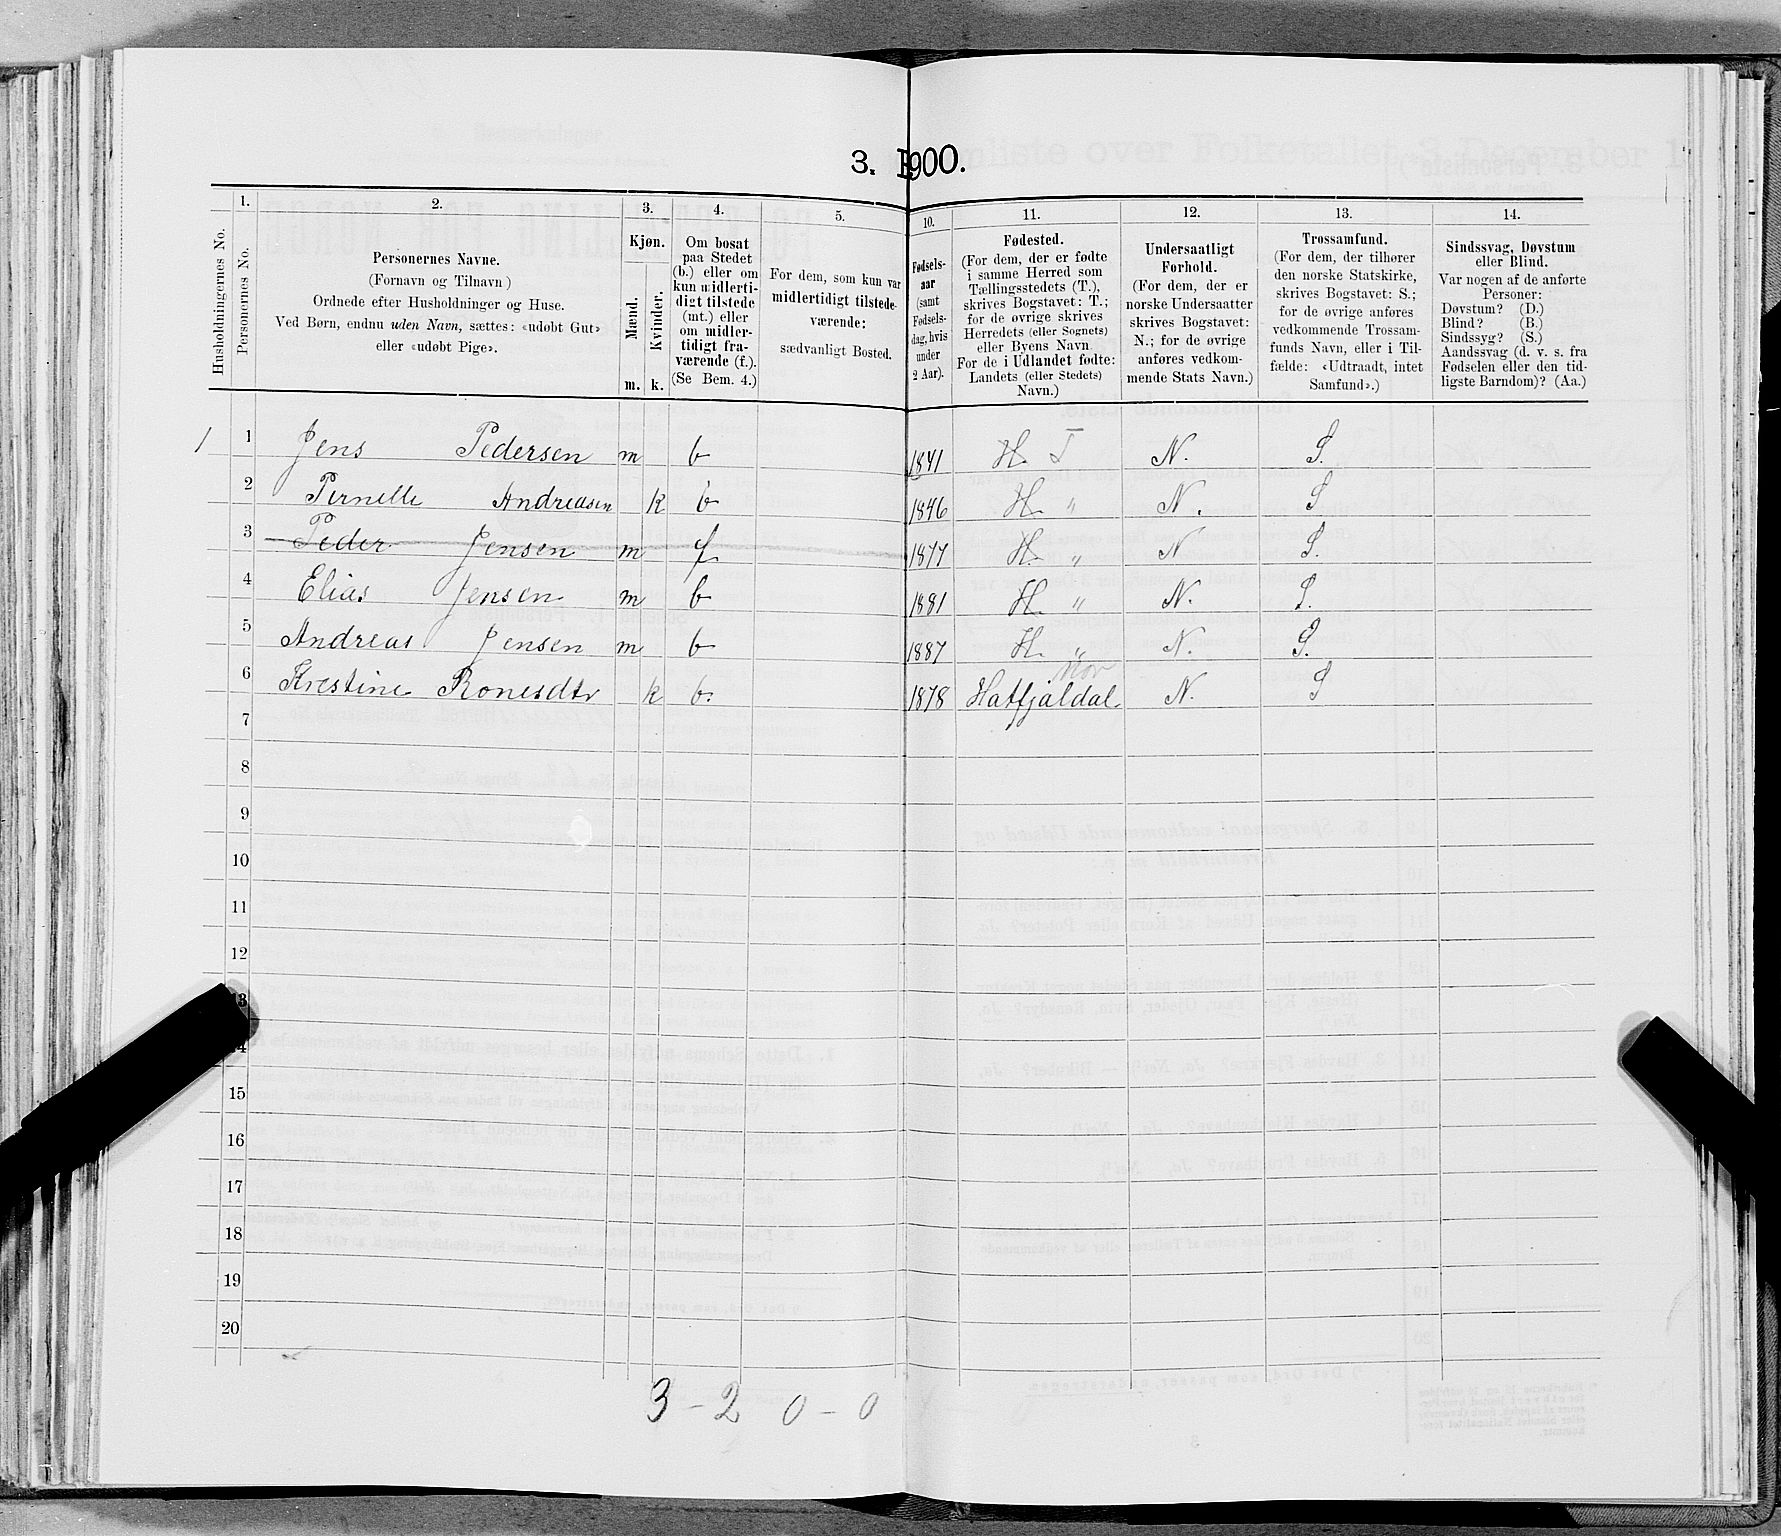 3. 1900.
1. 2. 3. 4. 5. 10. 11. 12. 13. 14.
Husholdningernes No.
Personernes No.
Personernes Navne.
(Fornavn og Tilnavn)
Ordnede efter Husholdninger og Huse.
Ved Børn, endnu uden Navn, sættes: «udøbt Gut»
eller «udøbt Pige».
Kjøn.
Mænd.
Kvinder.
m. k.
Om bosat
paa Stedet
(b.) eller om
kun midlerti-
digt tilstede
(mt.) eller
om midler-
tidigt fra-
værende (f.).
(Se Bem. 4.)
For dem, som kun var
midlertidigt tilstede-
værende:
sædvanligt Bosted.
Fødsels-
aar
(samt
Fødsels-
dag, hvis
under
2 Aar).
Fødested.
(For dem, der er fødte
i samme Herred som
Tællingsstedets (T.),
skrives Bogstavet: T.;
for de øvrige skrives
Herredets (eller Sognets)
eller Byens Navn
For de i Udlandet fødte:
Landets (eller Stedets)
Navn.)
Undersaatligt
Forhold.
(For dem, der er
norske Undersaatter
skrives Bogstavet:
N.; for de øvrige
anføres vedkom-
mende Stats Navn.)
Trossamfund.
(For dem, der tilhører
den norske Statskirke,
skrives Bogstavet: S.;
for de øvrige anføres
vedkommende Trossam-
funds Navn, eller i Til-
fælde: «Udtraadt, intet
Samfund».)
Sindssvag, Døvstum
eller Blind.
Var nogen af de anførte
Personer:
Døvstum? (D.)
Blind? (B.)
Sindssyg? (S.)
Aandssvag (d. v. s. fra
Fødselen eller den tid-
ligste Barndom)? (Aa.)
1 1 Jens Pedersen m b 1841 H. T N. S.
2 Pernelle Andreasen k b 1846 H. " N. S
3 Peder Jensen m f 1877 H. " N S.
4 Elias Jensen m b 1881 H. " N. S.
5 Andreas Jensen m b 1887 H. " N. S.
Nor
6 Krestine Ronesdtr k b. 1878 Hatfjäldal. N. S
7
8
9
10
11
12
13
14
15
16
17
18
19
20
3 - 2 0 - 0